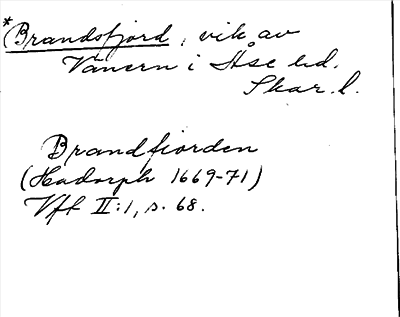 *Brandsfjord, vik av
Vänern i Åse hd.
Skar. l.
Brandfiorden
(Hadorph 1669-71)
Vfl II:1, s. 68.